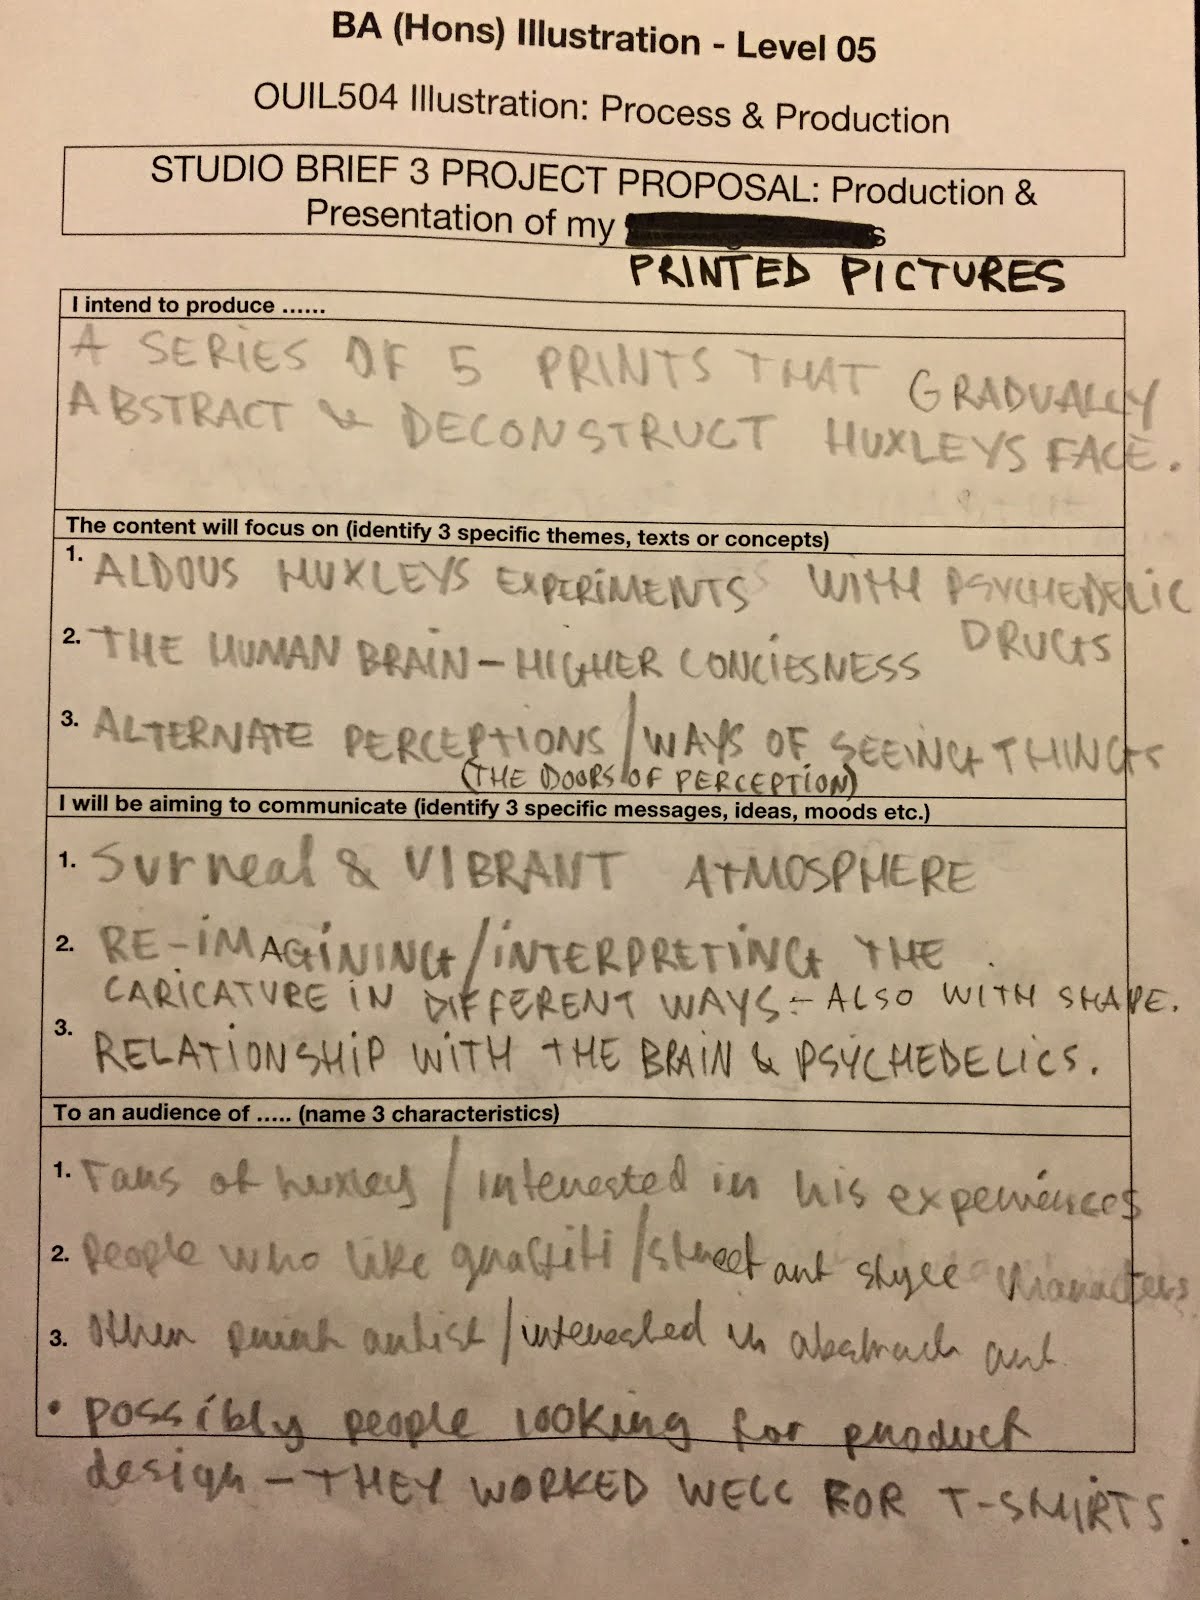 BA (Hons) Illustration - Level 05
OUIL504 Illustration: Process & Production
STUDIO BRIEF 3 PROJECT PROPOSAL: Production &
Presentation of my
PRINTED PICTURES
I intend to produce ......
A SERIES OF 5 PRINTS THAT GRADUALLY
ABSTRACT & DECONSTRUCT HUXLEYS FACE.
The content will focus on (identify 3 specific themes, texts or concepts)
1. ALDOUS HUXLEYS EXPERIMENTS WITH PSYCHEDELIC
DRUGS
2. THE HUMAN BRAIN - HIGHER CONCIESNESS
3. ALTERNATE PERCEPTIONS / WAYS OF SEEING THINGS
(THE DOORS OF PERCEPTION)
I will be aiming to communicate (identify 3 specific messages, ideas, moods etc.)
1. Surreal & VIBRANT ATMOSPHERE
2. RE-IMAGINING/INTERPRETING THE
CARICATURE IN DIFFERENT WAYS - ALSO WITH SHAPE.
3. RELATIONSHIP WITH THE BRAIN & PSYCHEDELICS.
To an audience of ..... (name 3 characteristics)
1. Fans of huxley / interested in his experiences
2. People who like graffiti / street art style characters
3. Other print artist / interested in abstract art.
• possibly people looking for product
design - THEY WORKED WELL FOR T-SHIRTS.